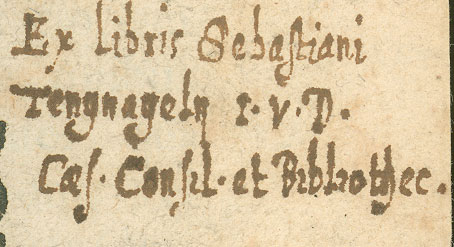 Ex libris Sebastiani
Tengnagelij I. V. D.
Cæs. Consil. et Bibliothec.